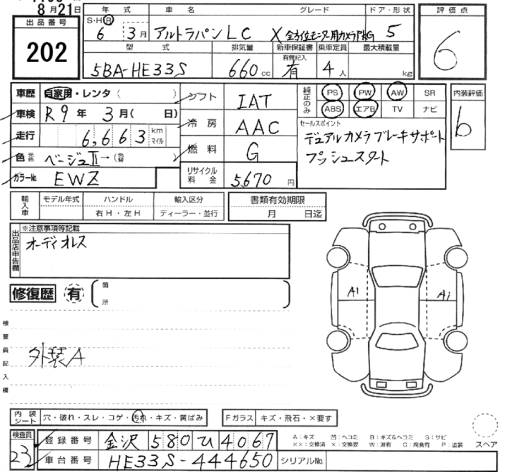 8月21日
出品番号
202
年式 車名 グレード ドア・形状 評価点
S・H・R
6 3月 アルトラパンLC X 全方位モニター用カメラPKG 5
6
型式 排気量 新車保証書 乗車定員 最大積載量
有償記入
5BA-HE33S 660cc 有 4人 kg
車歴 自家用・レンタ( )
車検 R9年3月( 日)
走行 6,663 km マイル
色 ベージュⅡ→(
カラーNo. EWZ
シフト IAT
冷房 AAC
燃料 G
リサイクル料金 5,670円
純正のみ PS PW AW SR
ABS エアB TV ナビ
内装評価
b
セールスポイント
デュアルカメラブレーキサポート
プッシュスタート
輸入車 モデル年式 ハンドル 輸入区分 書類有効期限
右H・左H ディーラー・並行 月 日迄
出品店申告欄
※注意事項等記載
オーディオレス
修復歴 有 箇所
検査員記入欄
外装A
A1 A1
内装 シート 穴・破れ・スレ・コゲ・汚れ・キズ・黄ばみ Fガラス キズ・飛石・×要す
検査員
23
登録番号 金沢 580 ひ 4067
車台番号 HE33S-444650 シリアルNo.
A:キズ U:ヘコミ B:キズ&ヘコミ S:サビ
スペア